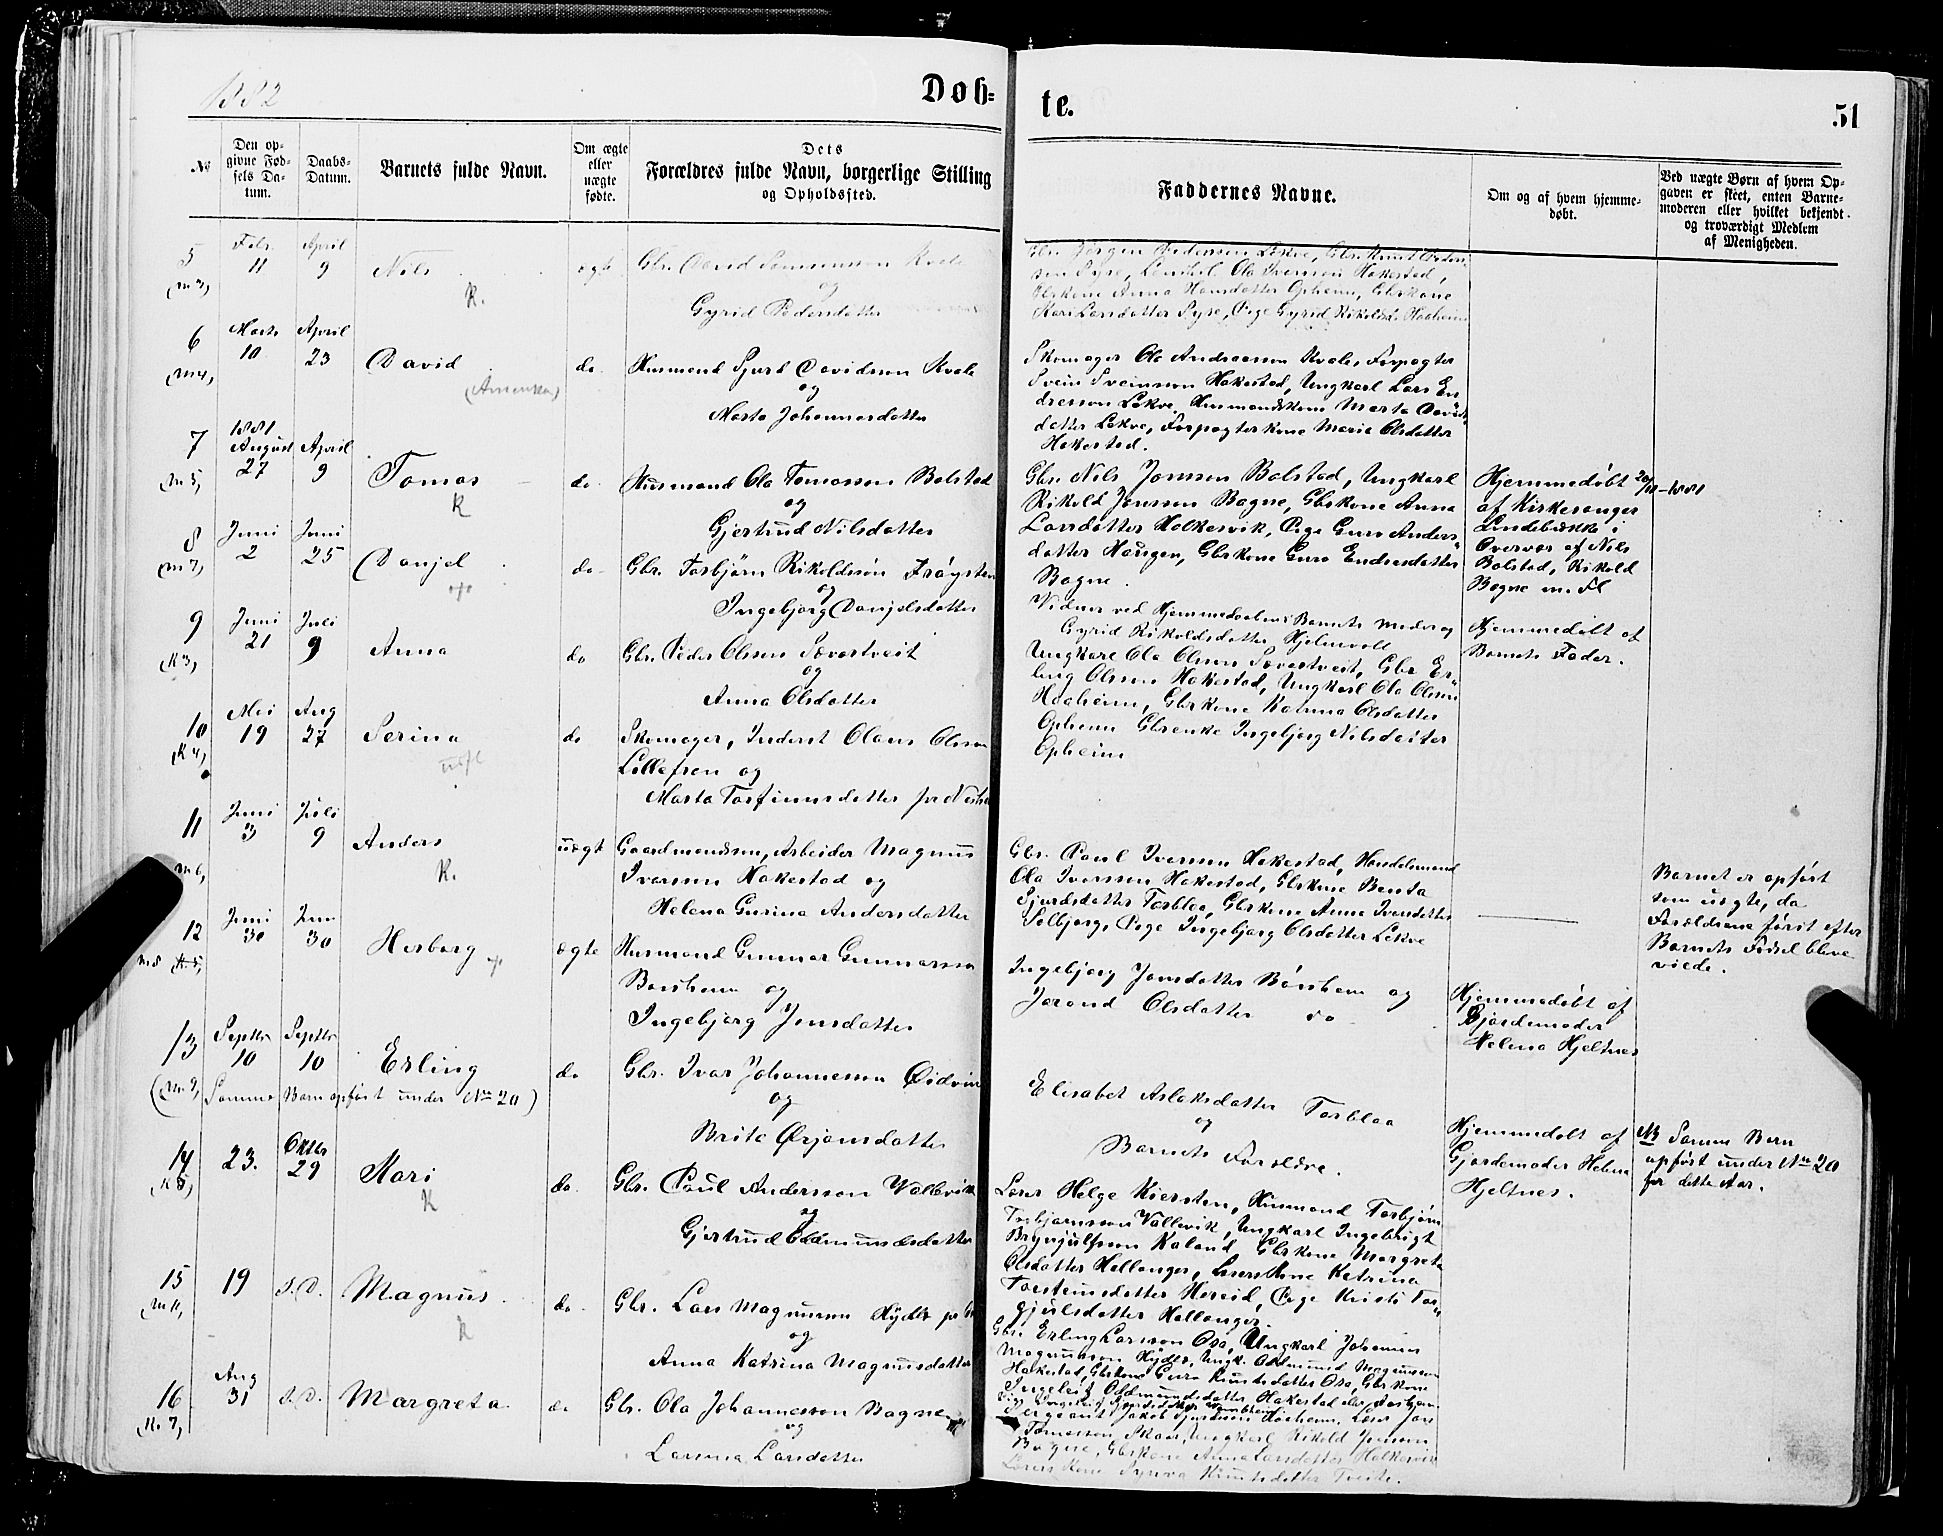 1882
Døb=
te.
51
№
Den op-
givne Fød-
sels Da-
tum.
Daabs-
Datum.
Barnets fulde Navn.
Om ægte
eller
uægte
fødte.
Dets
Forældres fulde Navn, borgerlige Stilling
og Opholdssted.
Faddernes Navne.
Om og af hvem hjemme-
døbt.
Ved uægte Børn af hvem Op-
gaven er skeet, enten Barne-
moderen eller hvilket bekjendt
og troværdigt Medlem
af Menigheden.
5
(M 3)
Febr.
11
April
9
Nils
K.
ægte
Gbr. David
og
Gyrid Pedersdatter
Gbr. Jørgen Pedersen Lekve, Gbr. Knut
Syse, Ola Iverson Hakestad,
Gbrkone Anna Hansdatter Opheim, Gbrkone
Kari Larsdatter Syse, Pige Gyrid Rikoldsd. Haaheim
6
(M 4)
Marts
10
April
23
David
(Amerika)
do
Husmand Sjurd Davidson Kvale
og
Marta Johannesdatter
Skomager Ola Andreasson Kvale, Forpagter
Svein Sveinson Hakestad, Ungkarl Lars En
dresson Lekve, Husmandskone Marta Davids
datter Lekve, Forpagterkone Marie Olsdatter
Hakestad.
7
(M 5)
1881
August
27
April
9
Tomas
K
do
Husmand Ola Tomasson Bolstad
og
Gjertrud Nilsdatter
Gbr. Nils Jonsson Bolstad, Ungkarl
Rikold Jonsson Bagne, Gbrkone Anna
Larsdatter Holkesvik, Pige Guro Anders
datter Haugen, Gbrkone Guro Endresdatter
Bagne.
Hjemmedøbt 20/11-1881
af Kirkesanger
Lindebække i
Overvær af Nils
Bolstad, Rikold
Bagne m. Fl
8
(M 7)
Juni
2
Juni
25
Danjel
do
Gbr. Torbjørn Rikoldsøn Frøystein
og
Ingebjørg Danjelsdatter
Vidner ved Hjemmedaaben: Barnets Moder og
Gyrid Rikoldsdatter Hjelmvoll
Hjemmedøbt af
Barnets Fader.
9
(K 3)
Juni
21
Juli
9
Anna
do
Gbr. Peder Olsson Sævartveit
og
Anna Olsdatter
Ungkarl Ola Olsson Sævartveit, Gbr Er
ling Olsson Hakestad, Ungkarl Ola Olsson
Haaheim, Gbrkone Katrina Olsdatter
Opheim Gbrenke Ingebjørg Nilsdatter
Opheim
10
(K 4)
Mai
19
Aug
27
Serina
do
Skomager, Inderst Olaus Olsson
Lillefosen og
Marta Torfinnsdatter
11
M 6)
Juni
3
Juli
9
Anders
K.
uægte
Gaardmandsøn, Arbeider Magnus
Iversson Hakestad og
Helena Gurina Andersdatter
Gbr. Paul Iversson Hakestad, Handelsmand
Ola Iversson Hakestad, Gbrkone Benta
Sjurdsdatter Torblaa, Gbrkone Anna Iversdatter
Solbjørg, Pige Ingebjørg Olsdatter Lekve
Barnet er opført
som uægte, da
Forældrene først efter
Barnets Fødsel bleve
viede.
12
M 8 (K 5)
Juni
30
Juni
30
Herborg
ægte
Husmand Gunnar Gunnarsson
Børsheim og
Ingebjørg Jonsdatter
Ingebjørg Jonsdatter Børsheim og
Jorand Olsdatter do
Hjemmedøbt af
Gjordemoder
Helena Hjeltnes
13
(M 9)
Septbr
10
Septbr
10
Erling
do
Gbr. Ivar Johannesson Øidvin
og
Brita Ørjansdatter
Samme Barn opført under No 20)
Elisabet Aslaksdatter Torblaa
og
Barnets Forældre.
Hjemmedøbt af
Gjordemoder Helena
Hjeltnes.
NB Samme Barn
opført under No 20
for dette Aar.
14
(K 6)
23.
Oktbr
29
Kari
K
do
Gbr. Paul Andersson Vallevik
og
Gjertrud Oddmundsdatter
Lærer Helge Kjerstein, Husmand Torbjørn
Torbjørnsson Vallevik, Ungkarl Ingebrigt
Brynjulfson Kaland Gbrkone Margreta
Olsdatter Hellanger, Lærerkone Katrina
Torsteinsdatter Hereid, Pige Kristi Tor
gjulsdatter Hellanger.
15
(M 11)
19
s.D.
Magnus
K
do
Gbr. Lars Magnusson Hylder
og
Anna Katrina Magnusdatter
Gbr. Erling Larsson Osa, Ungkarl Johannes
Magnusson Hylder, Ungk. Oddmund Magnusson
Hakestad, Gbrkone Guro Knutsdatter Osa, Gbrkone
Ingeleiv Oddmundsdatter Hakestad
16
(K. 7)
Aug
31
s.D.
Margreta
do
Gbr. Ola Johannesson Bagne
og
Larsina Larsdatter
Sergeant Jakob Sjurdsson Haaheim, Lærer Jon
Tomasson Skaar, Ungkarl Rikold Jonsson
Bagne, Gbrkone Anna Larsdatter Holkesvik
Lærerkone Synva Knutsdatter Tveite.